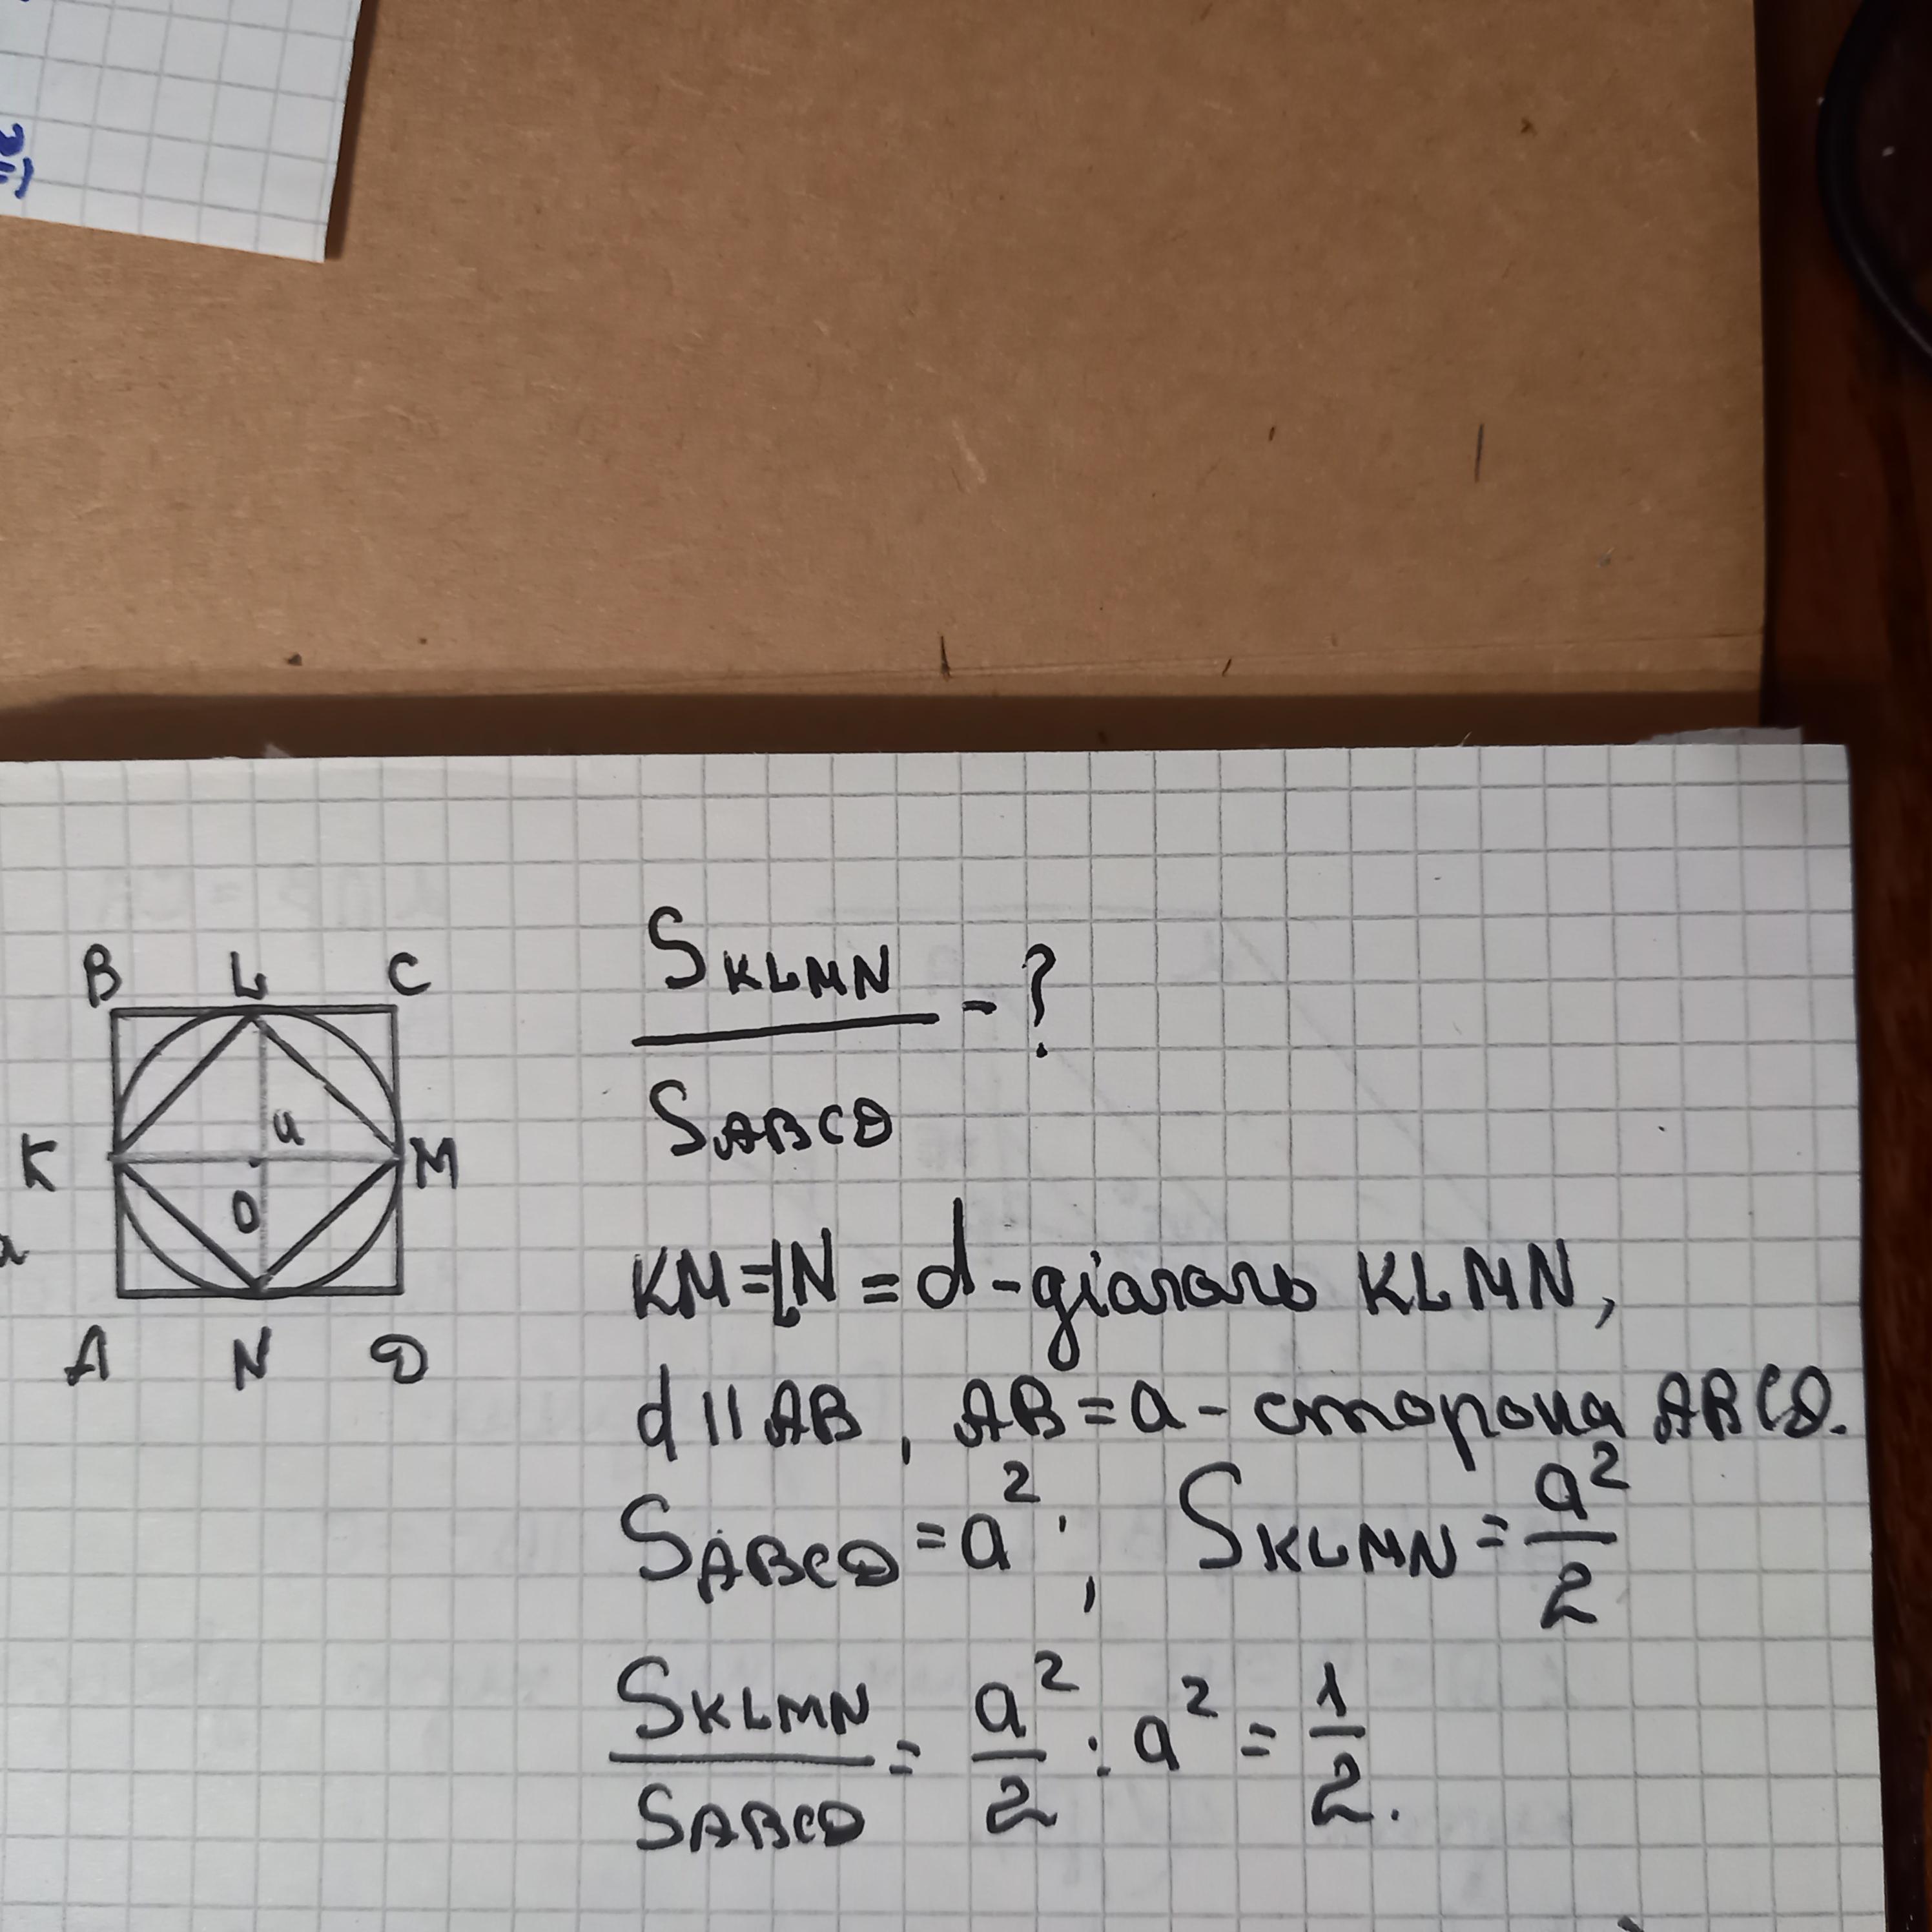 B L C
K a M
O
A N D
S KLMN
— - ?
S ABCD
KM=LN = d - діагональ KLMN,
d || AB, AB = a - сторона ABCD.
S ABCD = a²; S KLMN = a²/2
S KLMN / S ABCD = a²/2 : a² = 1/2.